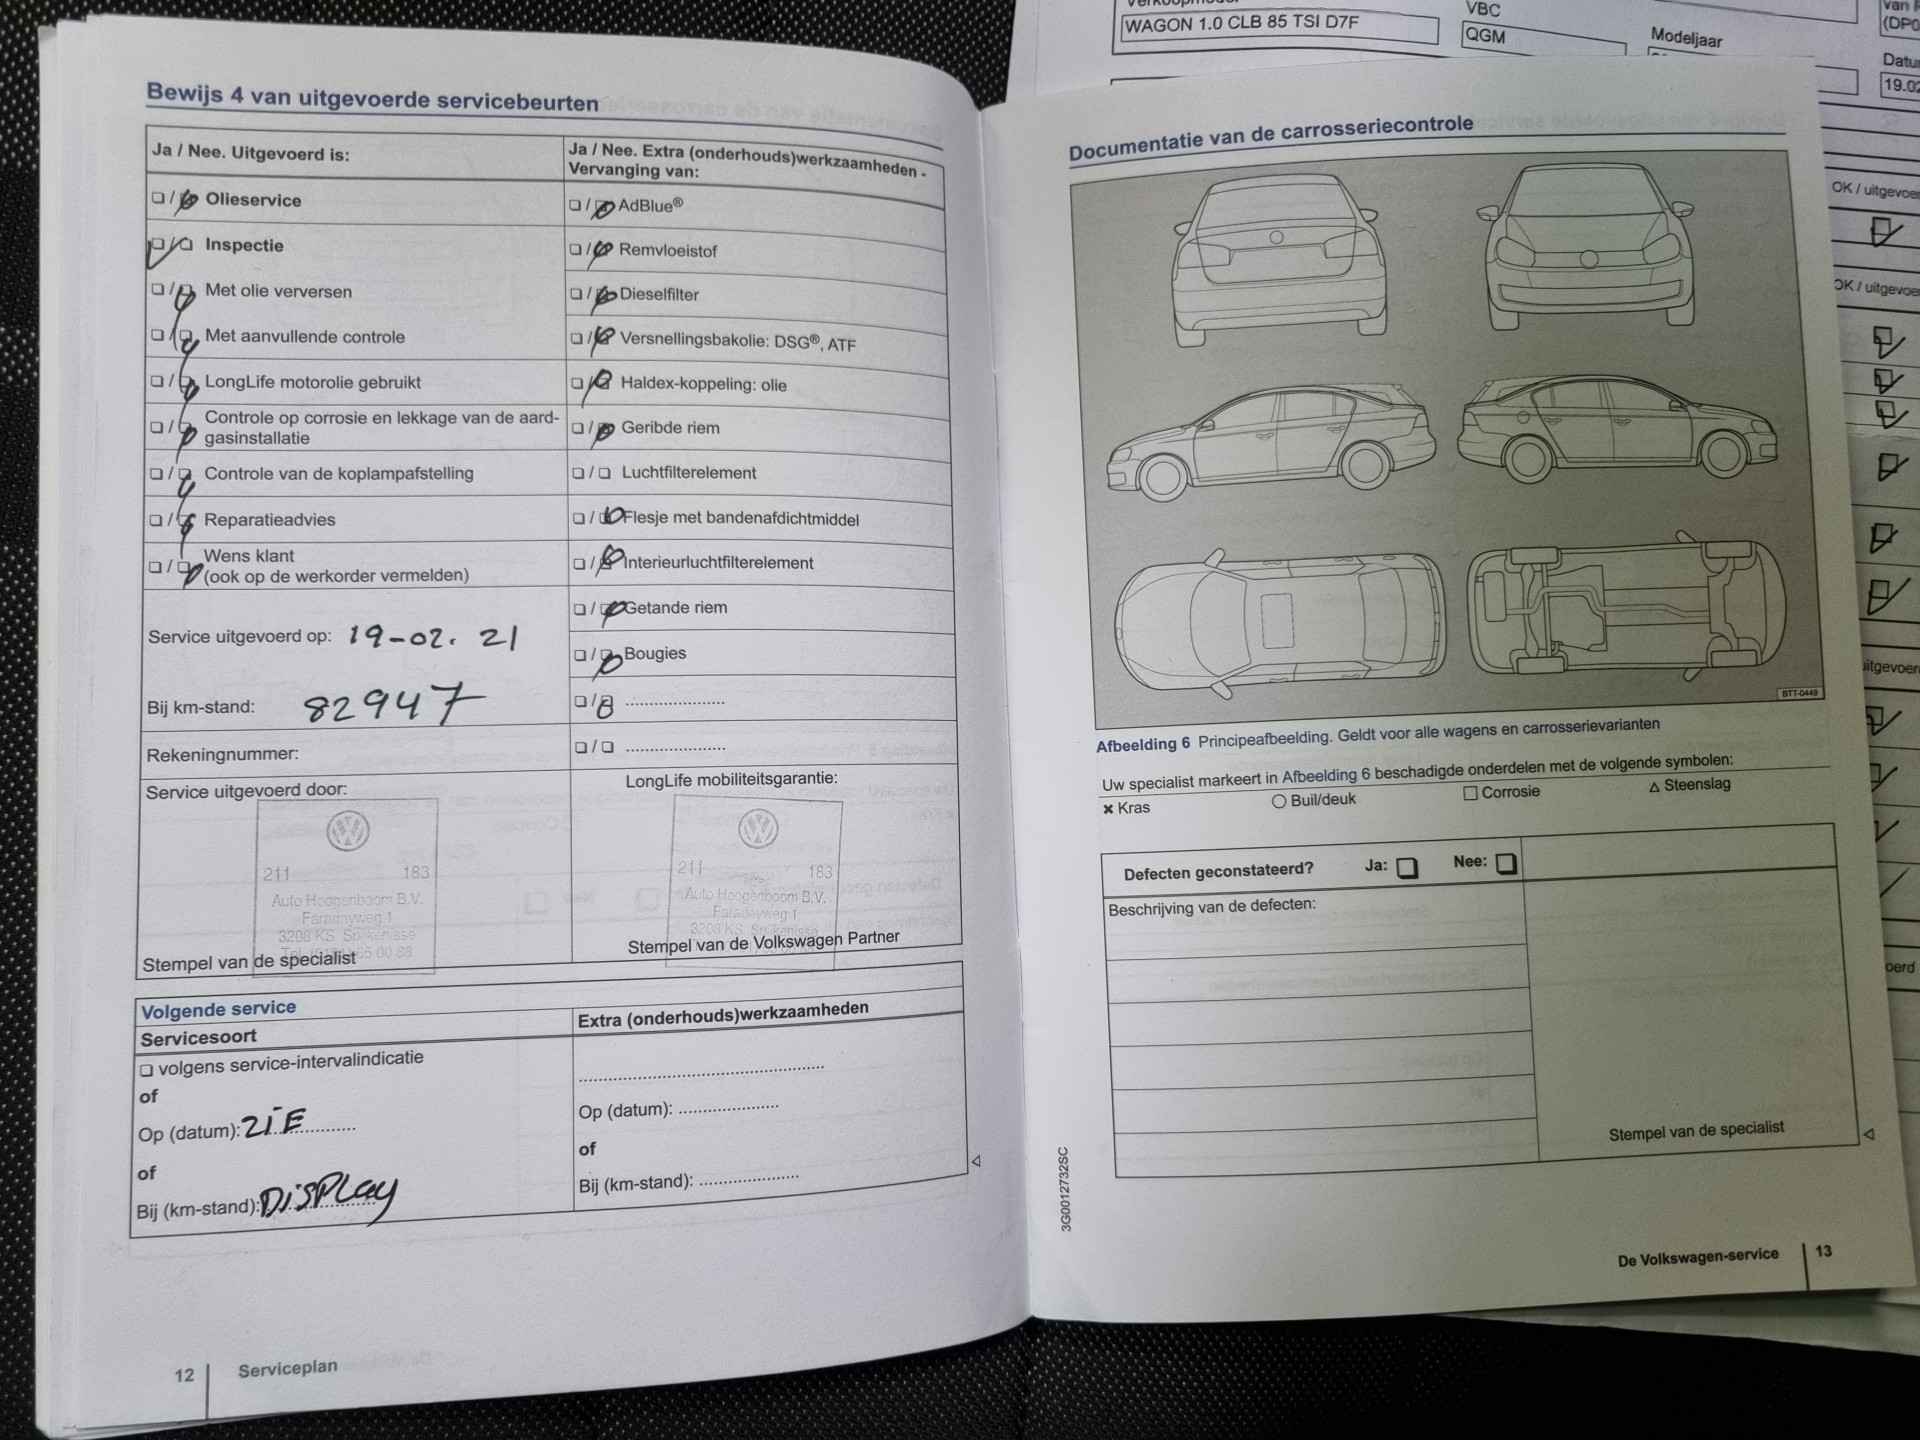 Bewijs 4 van uitgevoerde servicebeurten
Ja / Nee. Uitgevoerd is:
Olieservice
Inspectie
Met olie verversen
Met aanvullende controle
LongLife motorolie gebruikt
Controle op corrosie en lekkage van de aard-
gasinstallatie
Controle van de koplampafstelling
Reparatieadvies
Wens klant
(ook op de werkorder vermelden)
Service uitgevoerd op: 19-02. 21
Bij km-stand: 82947
Rekeningnummer:
Service uitgevoerd door:
211 183
Auto Hoogenboom B.V.
Faradayweg 1
3208 KS Spijkenisse
Stempel van de specialist
Ja / Nee. Extra (onderhouds)werkzaamheden -
Vervanging van:
AdBlue®
Remvloeistof
Dieselfilter
Versnellingsbakolie: DSG®, ATF
Haldex-koppeling: olie
Geribde riem
Luchtfilterelement
Flesje met bandenafdichtmiddel
Interieurluchtfilterelement
Getande riem
Bougies
LongLife mobiliteitsgarantie:
211 183
Auto Hoogenboom B.V.
Faradayweg 1
3208 KS Spijkenisse
Stempel van de Volkswagen Partner
Volgende service
Servicesoort
volgens service-intervalindicatie
of
Op (datum): ZIE
of
Bij (km-stand): DISPLAY
Extra (onderhouds)werkzaamheden
Op (datum):
of
Bij (km-stand):
12 Serviceplan
Documentatie van de carrosseriecontrole
BTT-0449
Afbeelding 6 Principeafbeelding. Geldt voor alle wagens en carrosserievarianten
Uw specialist markeert in Afbeelding 6 beschadigde onderdelen met de volgende symbolen:
Kras Buil/deuk Corrosie Steenslag
Defecten geconstateerd? Ja: Nee:
Beschrijving van de defecten:
Stempel van de specialist
3G0012732SC
De Volkswagen-service 13
WAGON 1.0 CLB 85 TSI D7F
VBC
QGM
Modeljaar
19.02
OK / uitgevoer
OK / uitgevoer
uitgevoer
oerd